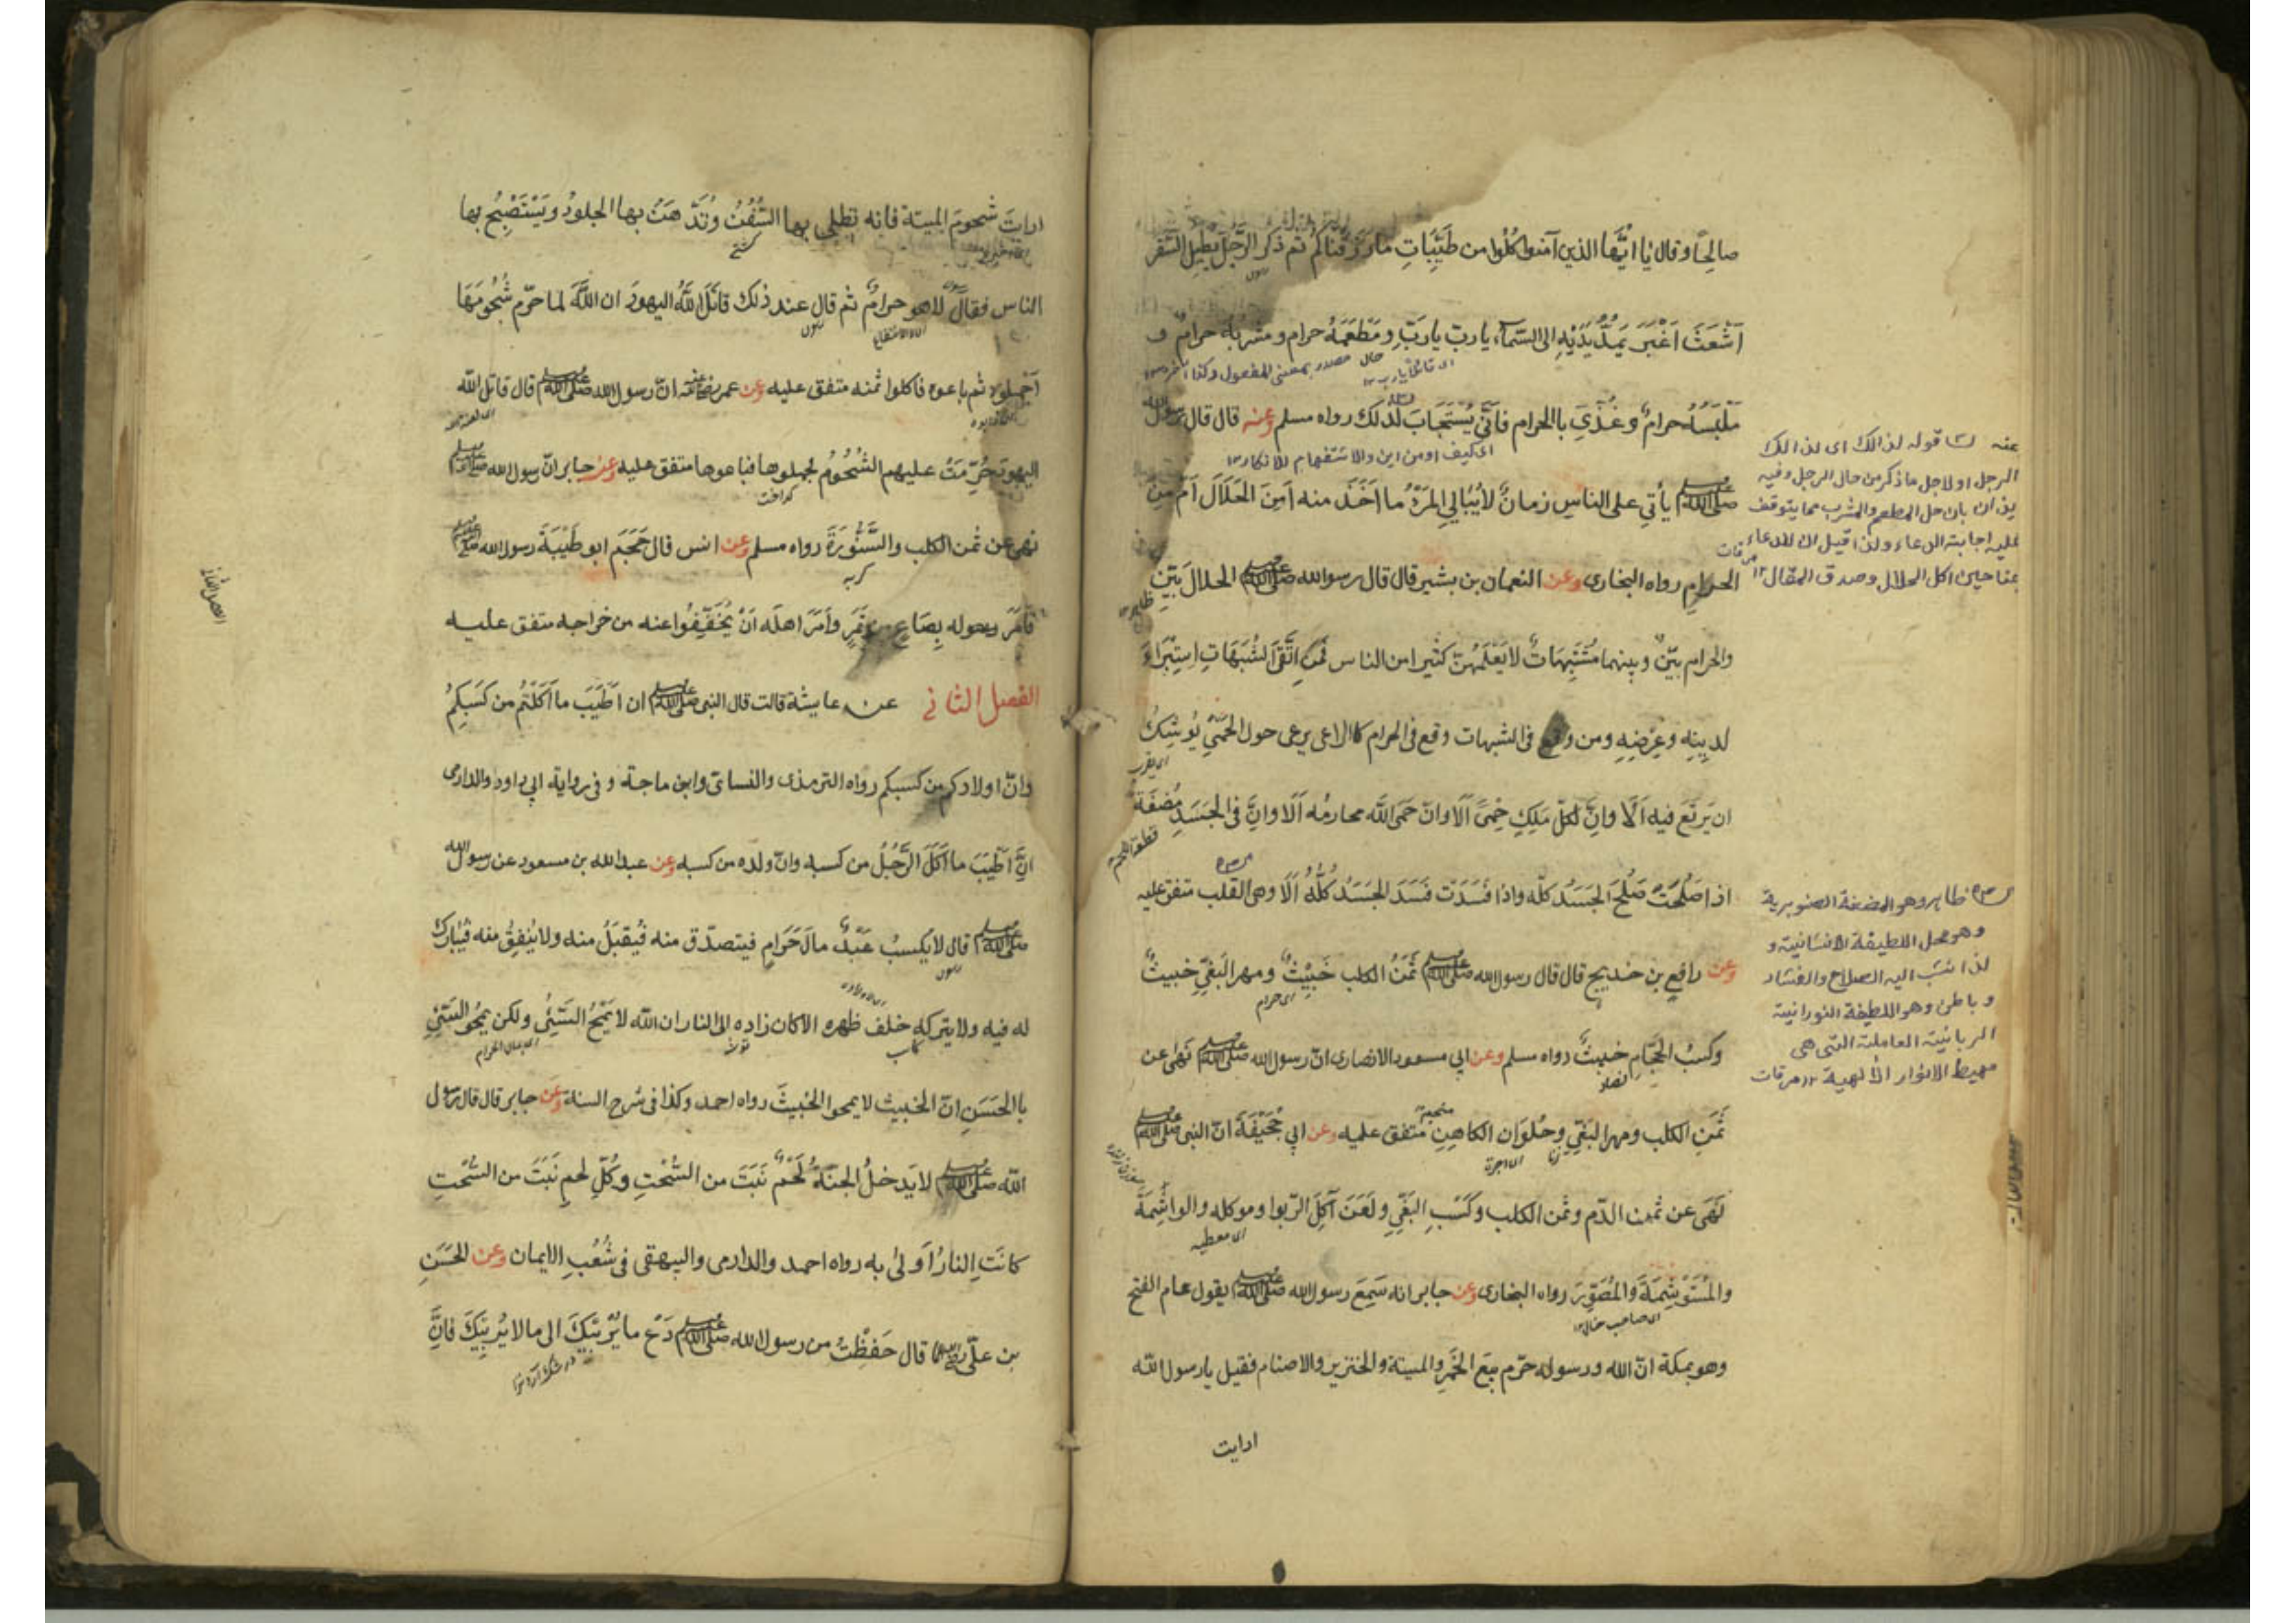 صالِحًا وقال يٰا ايُّها الذين آمنوا كُلُوا من طَيِّبَاتِ ما رَزَقناكُم ثم ذكر الرَّجُلَ يُطِيلُ السَّفَر
اَشْعَثَ اَغْبَرَ يَمُدُّ يَدَيْهِ الى السّماء يا ربّ يا ربّ ومَطْعَمُهُ حرام ومشربُهُ حرامٌ و
اى قائلا يارب ١٢
حال مصدر بمعنى المفعول وكذا
مَلْبَسُهُ حرامٌ وغُذِّيَ باالحرام فاَنّٰى يُسْتَجَابَ لذلك رواه مسلم وعنه قال قال رسول الله
اى كيف او من اين والاستفهام للانكار ١٢
صلى الله عليه وسلم يأتى على الناسِ زمانٌ لا يُبَالِي المَرْءُ ما اَخَذَ منه اَمِنَ الحَلَالِ اَمْ مِنَ
الحرامِ رواه البخارى وعن النعمان بن بشير قال قال رسول الله صلى الله عليه وسلم الحلالُ بَيِّنٌ
ظاهر ١٢
والحرام بيّنٌ وبينهما مُشْتَبِهَاتٌ لا يَعْلَمُهُنّ كثير من الناس فَمَنِ اتَّقَى الشُّبَهَاتِ اِسْتَبْرَاءَ
لدِينِهِ وعِرْضِهِ ومن وقع فى الشبهات وقع فى الحرام كاالراعى يرعى حول الحِمٰى يُوشِكُ
اى يقرب
ان يَرتَعَ فيه اَلَا وانّ لكلّ مَلِكٍ حِمًى اَلَا وانّ حِمَى اللّٰه محارمُه اَلَا وانّ فى الجَسَدِ مُضغَةً
قطعة اللحم
اذا صَلُحَتْ صَلُحَ الجَسَدُ كلّه واذا فَسَدَت فَسَدَ الجَسَدُ كُلُّهُ اَلَا وهى القلب متفق عليه
وعن رافع بن خديج قال قال رسول الله صلى الله عليه وسلم ثَمَنُ الكلب خَبِيْثٌ ومهر البَغِيِّ خبيثٌ
اى حرام
وكسبُ الحَجّامِ خبيثٌ رواه مسلم وعن ابي مسعود الانصارى انّ رسول الله صلى الله عليه وسلم نَهٰى عن
ثَمَنِ الكلب ومهر البَغِيِّ وحُلوَان الكاهِنِ متفق عليه وعن ابي جُحَيْفَةَ انّ النبى صلى الله عليه وسلم
زنا
اى اجرة
نَهٰى عن ثمن الدّم وثمن الكلب وكَسْبِ البَغِيِّ ولَعَنَ آكِلَ الرّبوا وموكله والواشِمَةَ
اى معطيه
والمُسْتَوْشِمَةَ والمُصَوِّرَ رواه البخارى وعن جابر انه سَمِعَ رسول الله صلى الله عليه وسلم يقول عام الفتح
وهو بمكة انّ الله ورسوله حرّم بيعَ الخَمْرِ والميتة والخنزير والاصنام فقيل يا رسول الله
ارايت
قوله لذالك اى لذالك
الرجل او لاجل ما ذكر من حال الرجل وفيه
ايذان بان حل المطعم والمشرب مما يتوقف
عليه اجابته الدعاء ولذا قيل ان للدعاء
جناحين اكل الحلال وصدق المقال ١٢ مرقات
ظاهر وهو المضغة الصنوبرية
وهو محل اللطيفة الانسانية و
لذا نسب اليه الصلاح والفساد
وباطن وهو اللطيفة النورانية
الربانية العاملة التى هى
مهبط الانوار الالٰهية ١٢ مرقات
ارايتَ شحومَ الميتة فانه تطلى بها السُّفُنُ وتُدَّهَنُ بها الجلودُ ويَسْتَصْبِحُ بها
الناس فقال لا هو حرامٌ ثم قال عند ذلك قاتَلَ اللّٰهُ اليهودَ ان اللّٰهَ لما حرّم شُحُومَهَا
اَجْمَلوه ثم باعوه فاكلوا ثمنه متفق عليه وعن عمر رضى الله عنه انّ رسول الله صلى الله عليه وسلم قال قاتل الله
اليهودَ حُرِّمَتْ عليهم الشُّحُومُ فجملوها فباعوها متفق عليه وعن جابر انّ رسول الله صلى الله عليه وسلم
نهى عن ثمن الكلب والسَّنُّورَةَ رواه مسلم وعن انس قال حَجَمَ ابو طَيْبَةَ رسول الله صلى الله عليه وسلم
گربہ
فاَمَرَ رسوله بِصَاعٍ من تَمَرٍ واَمَرَ اهلَه اَنْ يُخَفِّفُوا عنه من خراجه متفق عليه
الفصل الثانى عن عايشة قالت قال النبى صلى الله عليه وسلم ان اَطْيَبَ ما اَكَلْتُم من كَسَبِكُمْ
وانّ اولادكم من كسبكم رواه الترمذى والنسائ وابن ماجة وفى رواية ابي داود والدارمى
انَّ اَطْيَبَ ما اَكَلَ الرَّجُلُ من كسبه وانّ ولده من كسبه وعن عبد الله بن مسعود عن رسول الله
صلى الله عليه وسلم قال لا يكسبُ عَبْدٌ مالَ حَرَامٍ فيتصدّق منه فيُقبَلُ منه ولا يُنفِقُ منه فيُبَارك
له فيه ولا يتركه خلف ظهره الا كان زاده الى النار ان اللّٰه لا يَمْحُ السَّيِّئَ ولكن يمحو السَّيِّئَ
باالحَسَنِ انّ الخبيث لا يمحوا الخبيثَ رواه احمد وكذا فى شرح السنة وعن جابر قال قال رسول
اللّٰه صلى الله عليه وسلم لا يَدخلُ الجنّةَ لَحْمٌ نَبَتَ من السُّحْتِ وكُلّ لحمٍ نَبَتَ من السُّحْتِ
كانَتِ النارُ اَولٰى به رواه احمد والدارمى والبيهقى فى شُعُبِ الايمان وعن الحَسَنِ
بن علىّ رضى الله عنهما قال حَفِظْتُ من رسول الله صلى الله عليه وسلم دَعْ ما يُرِيْبُكَ الى ما لا يُرِيْبُكَ فانّ
الفصل الثانى